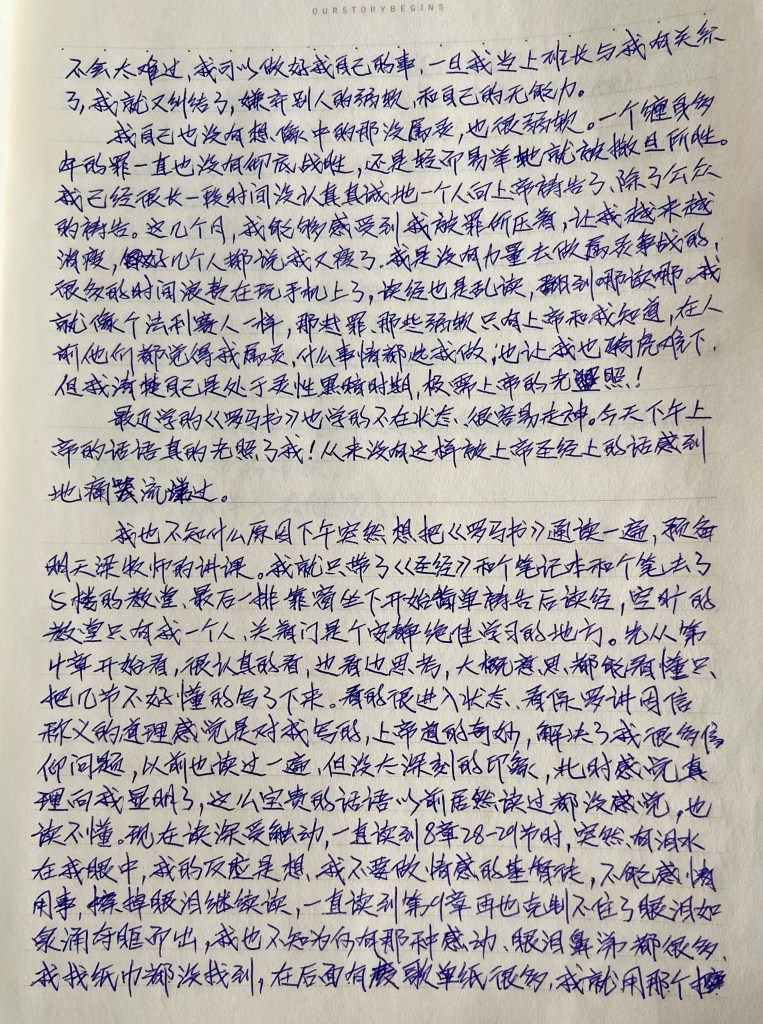 OURSTORYBEGINS
不会太难过，我可以做好我自己的事，一旦我当上班长与我有关系
了，我就又纠结了，嫌弃别人的弱软和自己的无能力。
我自己也没有想像中的那没属灵，也很弱软。一个缠身多
年的罪一直也没有彻底战胜，还是轻而易举地就被撒旦所胜。
我已经很长一段时间没认真真诚地一个人向上帝祷告了、除了公众
的祷告。这几个月，我能够感受到我被罪所压着，让我越来越
消瘦，好几个人都说我又瘦了。我是没有力量去做属灵争战的，
很多的时间浪费在玩手机上了，读经也是乱读，翻到哪读哪。我
就像个法利赛人一样，那些罪、那些弱软只有上帝和我知道，在人
前他们都觉得我属灵，什么事情都找我做；也让我也骑虎难下，
但我清楚自己是处于灵性黑暗时期，极需上帝的光照！
最近学的《罗马书》也学的不在状态、很容易走神。今天下午上
帝的话语真的光照了我！从来没有这样被上帝圣经上的话感到
地痛哭流过。
我也不知什么原因下午突然想把《罗马书》通读一遍，预备
明天梁牧师的讲课。我就只带了《圣经》和个笔记本和个笔去了
5楼的教堂、最后一排靠窗坐下开始简单祷告后读经，空旷的
教堂只有我一个人、关着门是个安静绝佳学习的地方。先从第
4章开始看，很认真的看，边看边思考，大概意思都能看懂只
把几节不好懂的写了下来。看的很进入状态、看保罗讲因信
称义的道理感觉是对我写的，上帝道的奇妙，解决了我很多信
仰问题，以前也读过一遍、但没太深刻的印象，此时感觉真
理向我显明了，这么宝贵的话语以前居然读过都没感觉，也
读不懂。现在读深受触动，一直读到8章28-29节时，突然有泪水
在我眼中，我的反应是想、我不要做情感的基督徒，不能感情
用事，擦掉眼泪继续读，一直读到第9章再也克制不住了眼泪如
泉涌夺眶而出，我也不知为何有那种感动、眼泪鼻涕都很多、
我找纸巾都没找到，在后面有歌单纸很多，我就用那个擦